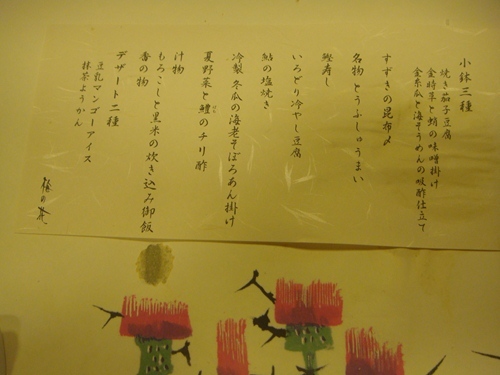 小鉢三種
焼き茄子豆腐
金時草と蛸の味噌掛け
金糸瓜と海そうめんの吸酢仕立て
すずきの昆布〆
名物 とうふしゅうまい
鰹寿し
いろどり冷やし豆腐
鮎の塩焼き
冷製 冬瓜の海老そぼろあん掛け
夏野菜と鱧のチリ酢
汁物
もろこしと黒米の炊き込み御飯
香の物
デザート二種
豆乳マンゴーアイス
抹茶ようかん